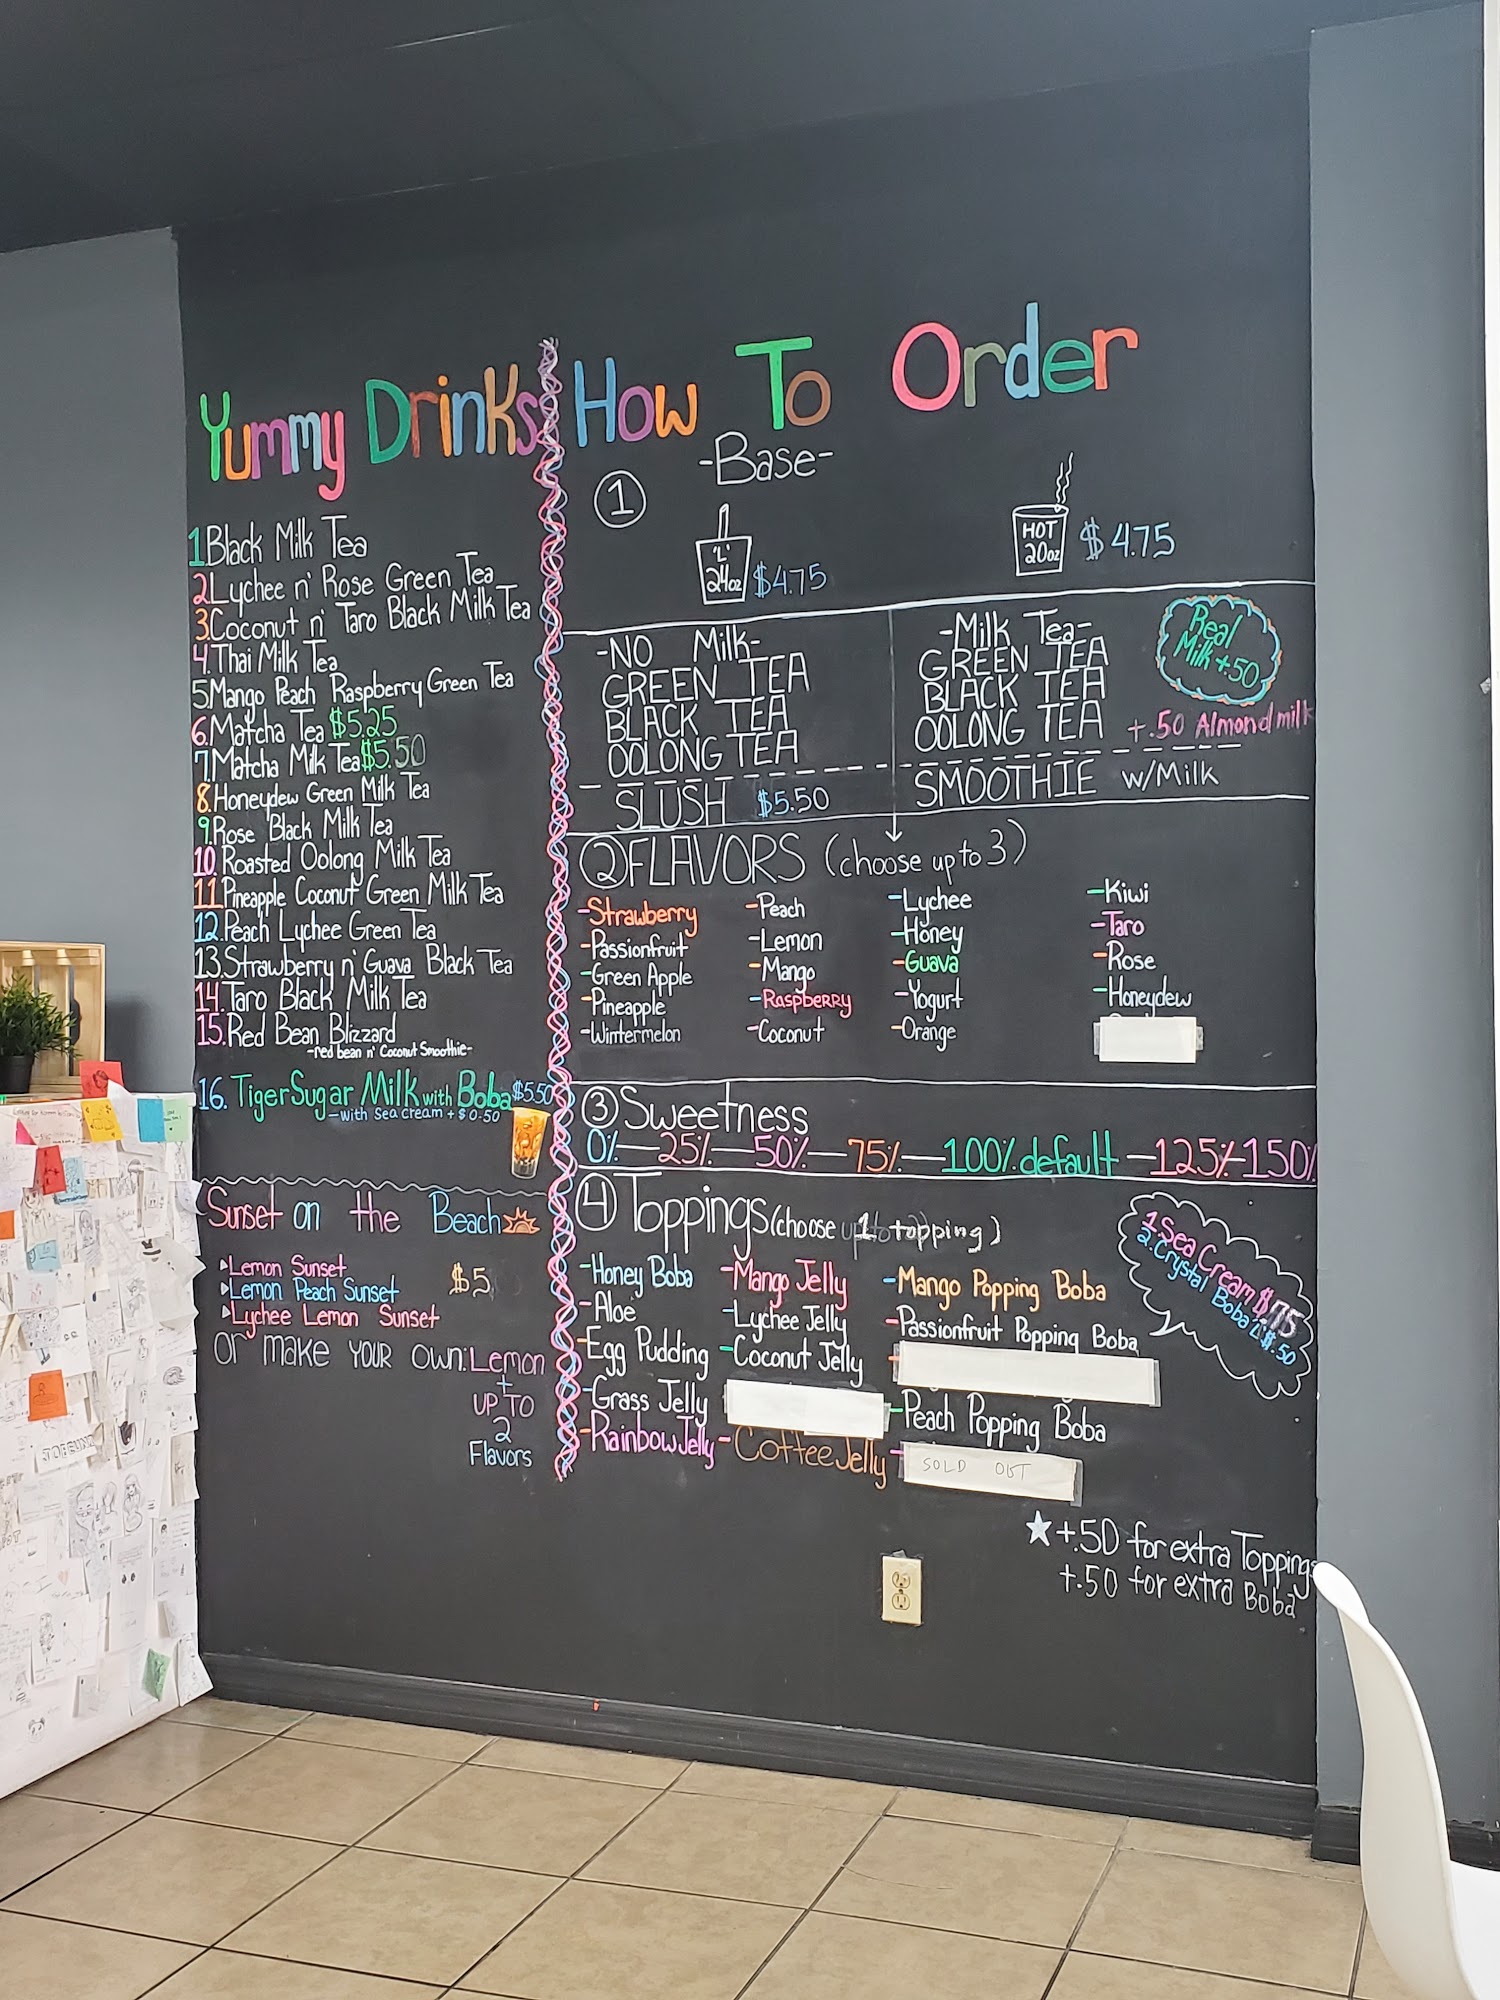 Yummy Drinks
1 Black Milk Tea
2 Lychee n' Rose Green Tea
3. Coconut n' Taro Black Milk Tea
4. Thai Milk Tea
5 Mango Peach Raspberry Green Tea
6. Matcha Tea $5.25
7. Matcha Milk Tea $5.50
8. Honeydew Green Milk Tea
9. Rose Black Milk Tea
10. Roasted Oolong Milk Tea
11. Pineapple Coconut Green Milk Tea
12. Peach Lychee Green Tea
13. Strawberry n' Guava Black Tea
14. Taro Black Milk Tea
15. Red Bean Blizzard
-red bean n' Coconut Smoothie-
16. Tiger Sugar Milk with Boba $5.50
-with Sea cream + $0.50
Sunset on the Beach
Lemon Sunset
Lemon Peach Sunset $5
Lychee Lemon Sunset
Or make YOUR OWN: Lemon
+
UP TO
2
Flavors
How To Order
1 -Base-
'L'
24oz $4.75
HOT
20oz $4.75
-NO Milk-
GREEN TEA
BLACK TEA
OOLONG TEA
SLUSH $5.50
-Milk Tea-
GREEN TEA
BLACK TEA
OOLONG TEA +.50 Almond milk
SMOOTHIE w/Milk
Real
Milk +.50
2 FLAVORS (choose up to 3)
-Strawberry
-Passionfruit
-Green Apple
-Pineapple
-Wintermelon
-Peach
-Lemon
-Mango
-Raspberry
-Coconut
-Lychee
-Honey
-Guava
-Yogurt
-Orange
-Kiwi
-Taro
-Rose
-Honeydew
3 Sweetness
0%—25%—50%—75%—100% default—125%-150%
4 Toppings (choose 1 topping)
-Honey Boba
-Aloe
-Egg Pudding
-Grass Jelly
-Rainbow Jelly
-Mango Jelly
-Lychee Jelly
-Coconut Jelly
-Coffee Jelly
-Mango Popping Boba
-Passionfruit Popping Boba
-Peach Popping Boba
SOLD OUT
1. Sea Cream $.75
2. Crystal Boba $.50
+.50 for extra Toppings
+.50 for extra Boba